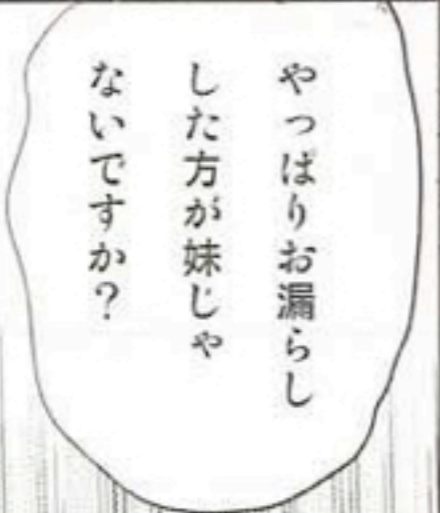 やっぱりお漏らし
した方が妹じゃ
ないですか？